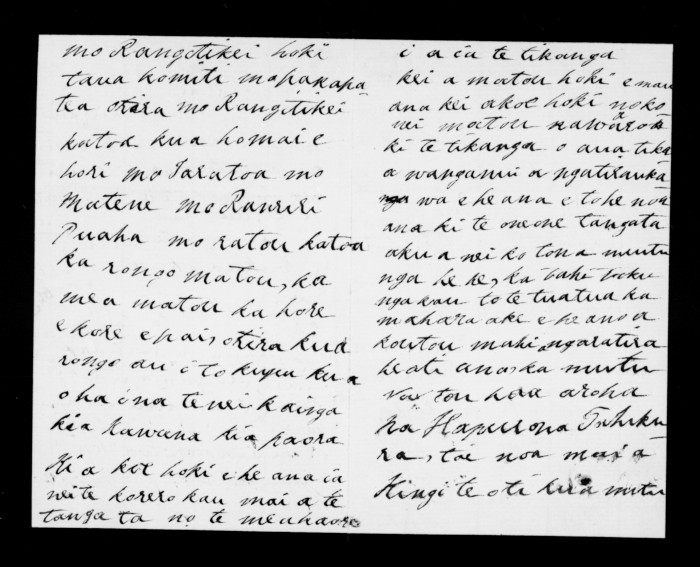 mo Rangitikei hoki
taua komiti mo pakapā
tia otira mo Rangitikei
katoa kua homai e
hori mo Taratoa mo
Matene mo Ranriri
Puaha mo ratou katoa
ka rongo matou, ka
mea matou ka hore
e kore e pai, otira kua
rongo au i to kupu kua
oha ina tenei kainga
kia Kawana kia paora
Ki a koe hoki e he ana ia
nei te korero kau mai a te
tangata no te mea haore
i a ia te tikanga
kei a matou hoki e mau
ana kei a koe hoki noko
nei matou
ki te tikanga o ana tika
a wanganui a ngatirauka
wa e he ana e tohe noa
ana ki te oneone tangata
aku a nei ko tona mutu
nga he he, ka vahi toku
ngakau to te tuatua ka
mahara ake e he ano a
koutou mahi ngaratira
heati ano, ka mutu
na tou hoa aroha
na Hapurona Tohiku
ra, tae noa mai a
Kingi te oti kua mutu